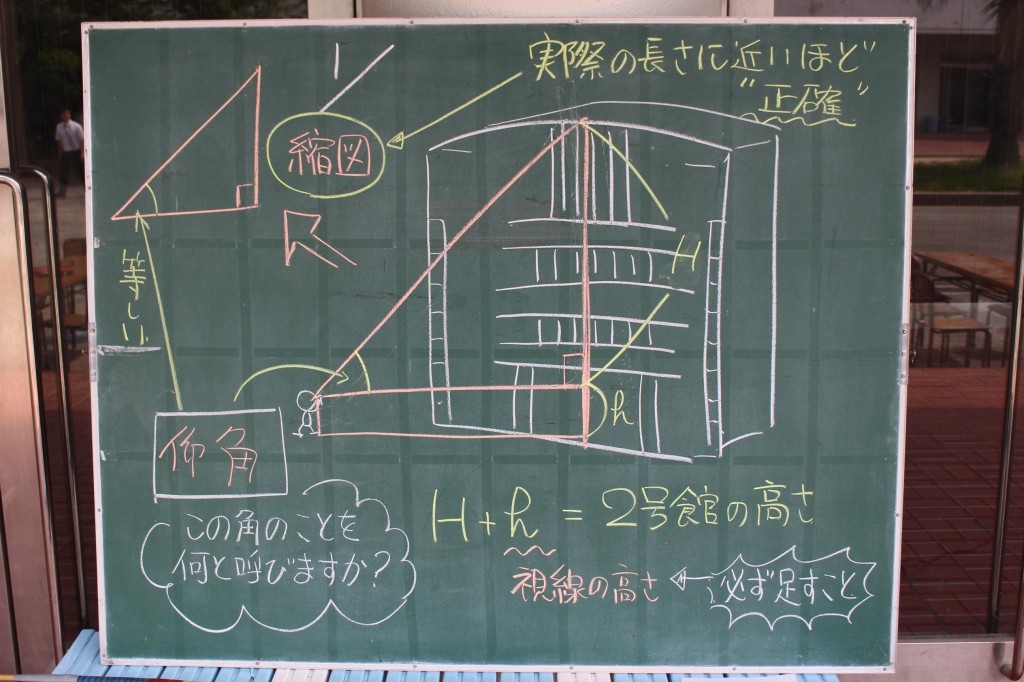 実際の長さに近いほど
"正確"
縮図
等しい
H
h
仰角
この角のことを
何と呼びますか?
H+h = 2号館の高さ
視線の高さ
必ず足すこと